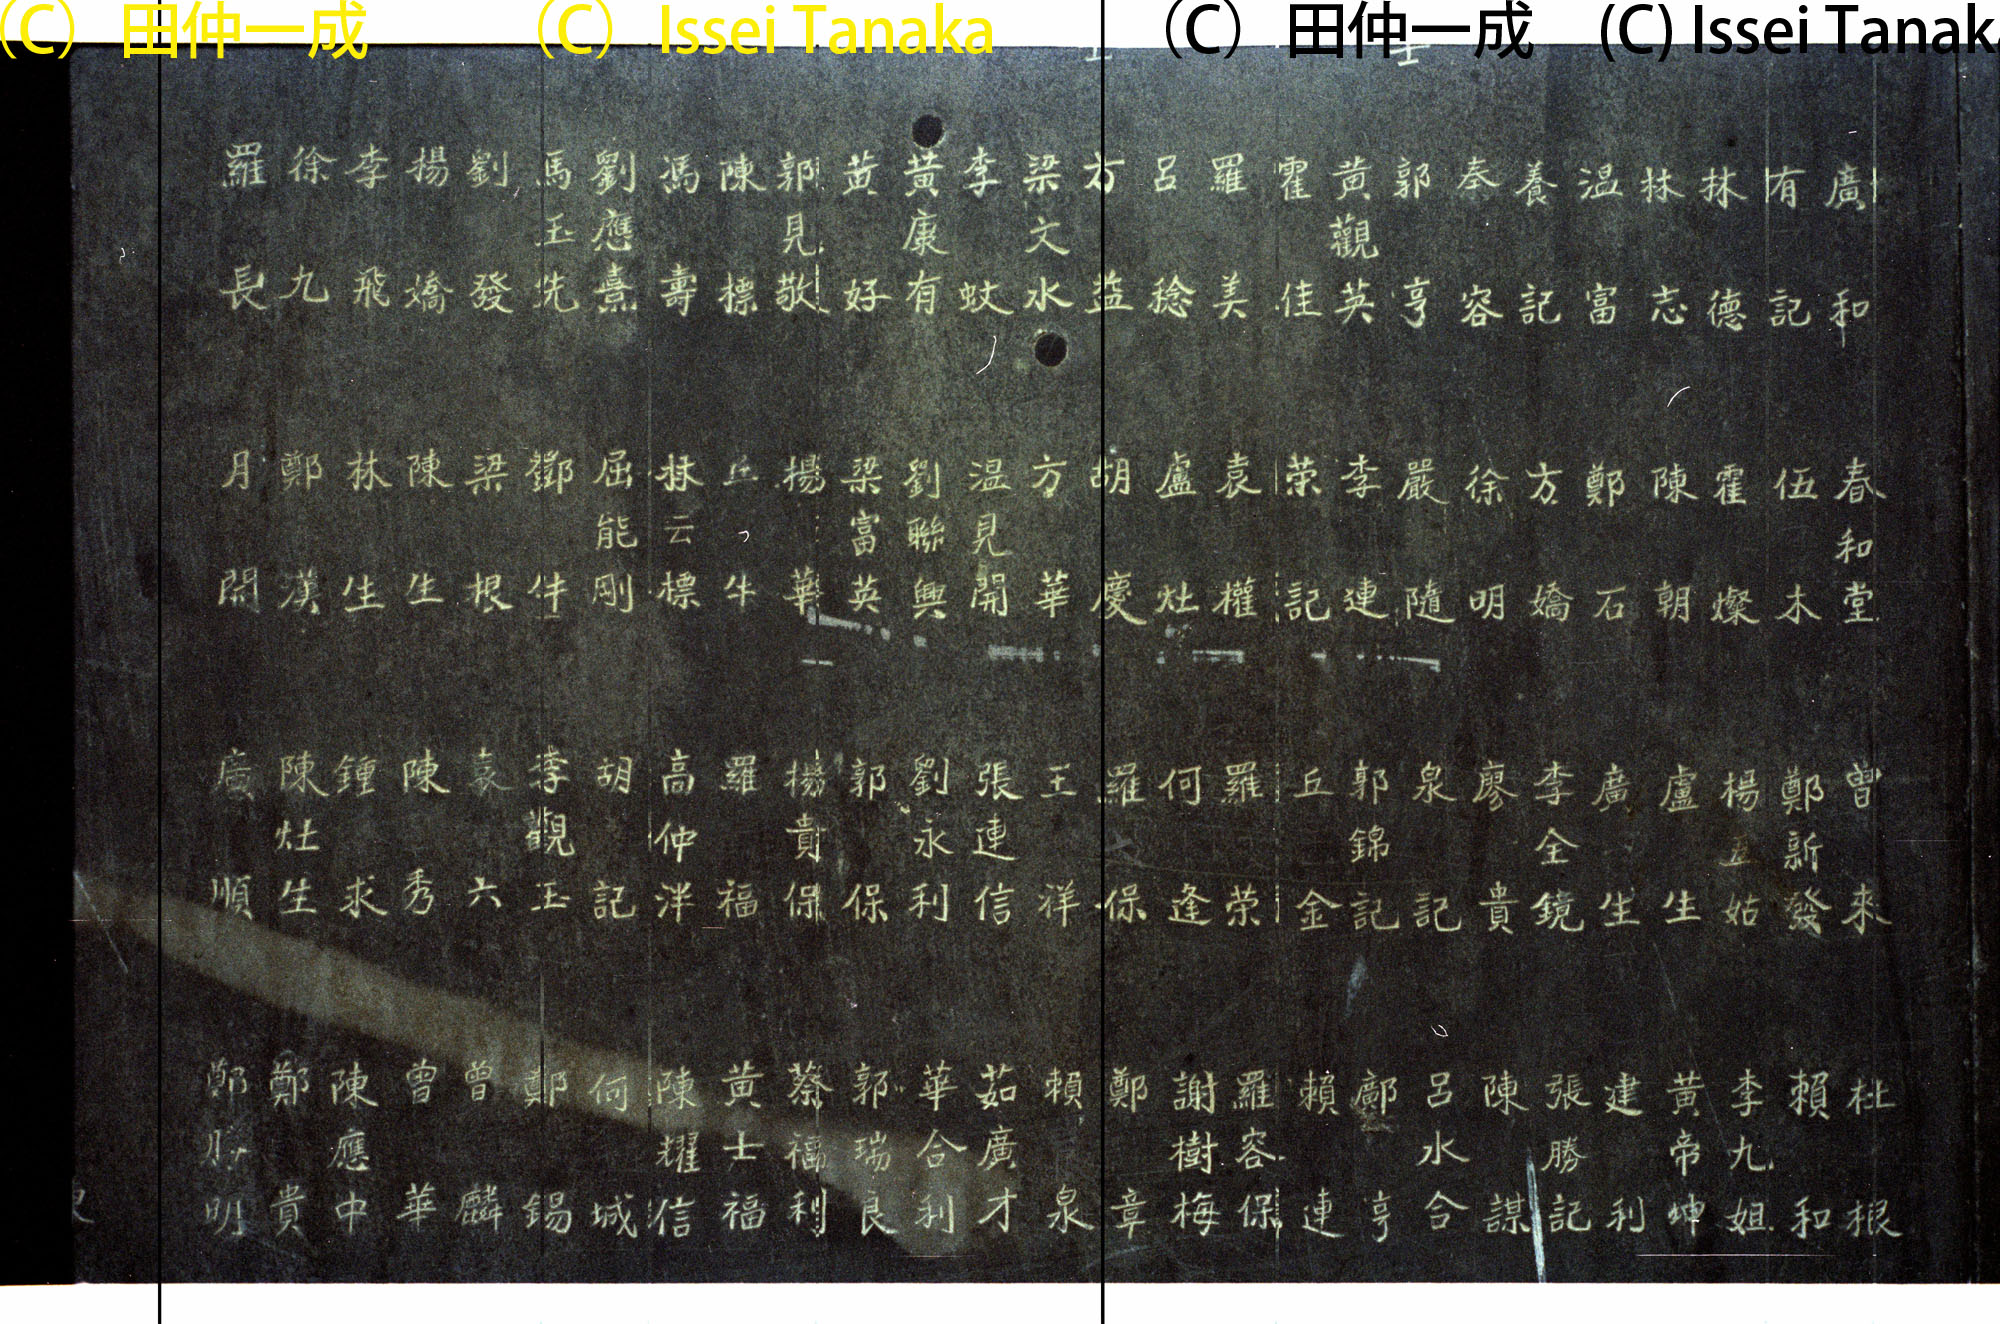 (C) 田仲一成 (C) Issei Tanaka (C) 田仲一成 (C) Issei Tanaka
廣和
有記
林德
林志
温富
養記
秦容
郭亨
黄觀英
霍佳
羅美
呂稔
方益
梁文水
李蚊
黄康有
黄好
郭見敬
陳標
馮壽
劉應熹
馬玉先
劉發
揚嬌
李飛
徐九
羅長
春和堂
伍木
霍燦
陳朝
鄭石
方嬌
徐明
嚴隨
李連
荣記
袁權
盧灶
胡慶
方華
温見開
劉聯興
梁富英
揚華
丘牛
林云標
屈能剛
鄧牛
梁根
陳生
林生
鄭漢
月開
曾來
鄭新發
楊五姑
盧生
廣生
李全鏡
廖貴
泉記
郭錦記
丘金
羅荣
何逢
羅保
王洋
張連信
劉永利
郭保
楊貴保
羅福
高仲泮
胡記
李觀玉
袁六
陳秀
鍾求
陳灶生
廣順
杜根
賴和
李九姐
黄帝坤
建利
張勝記
陳謀
呂水合
鄺亨
賴連
羅容保
謝樹梅
鄭章
賴泉
茹廣才
華合利
郭瑞良
蔡福利
黄士福
陳耀信
何城
鄭錫
曾麟
曾華
陳應中
鄭貴
鄭勝明